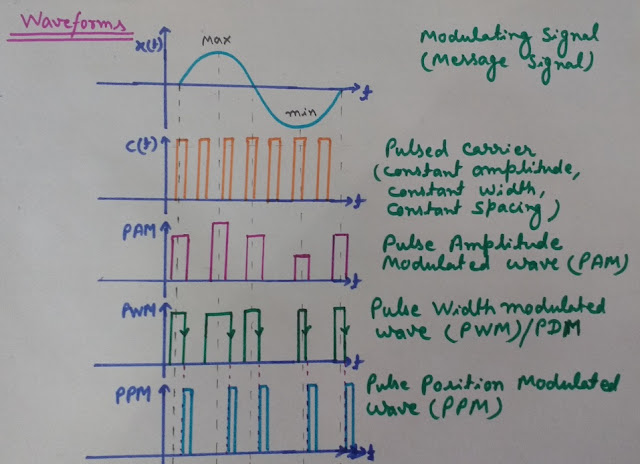 Waveforms
x(t)
Max
min
t
Modulating Signal
(Message Signal)
C(t)
t
Pulsed carrier
(constant amplitude,
constant width,
constant spacing)
PAM
t
Pulse Amplitude
Modulated wave (PAM)
PWM
t
Pulse Width modulated
wave (PWM)/PDM
PPM
t
Pulse Position Modulated
wave (PPM)